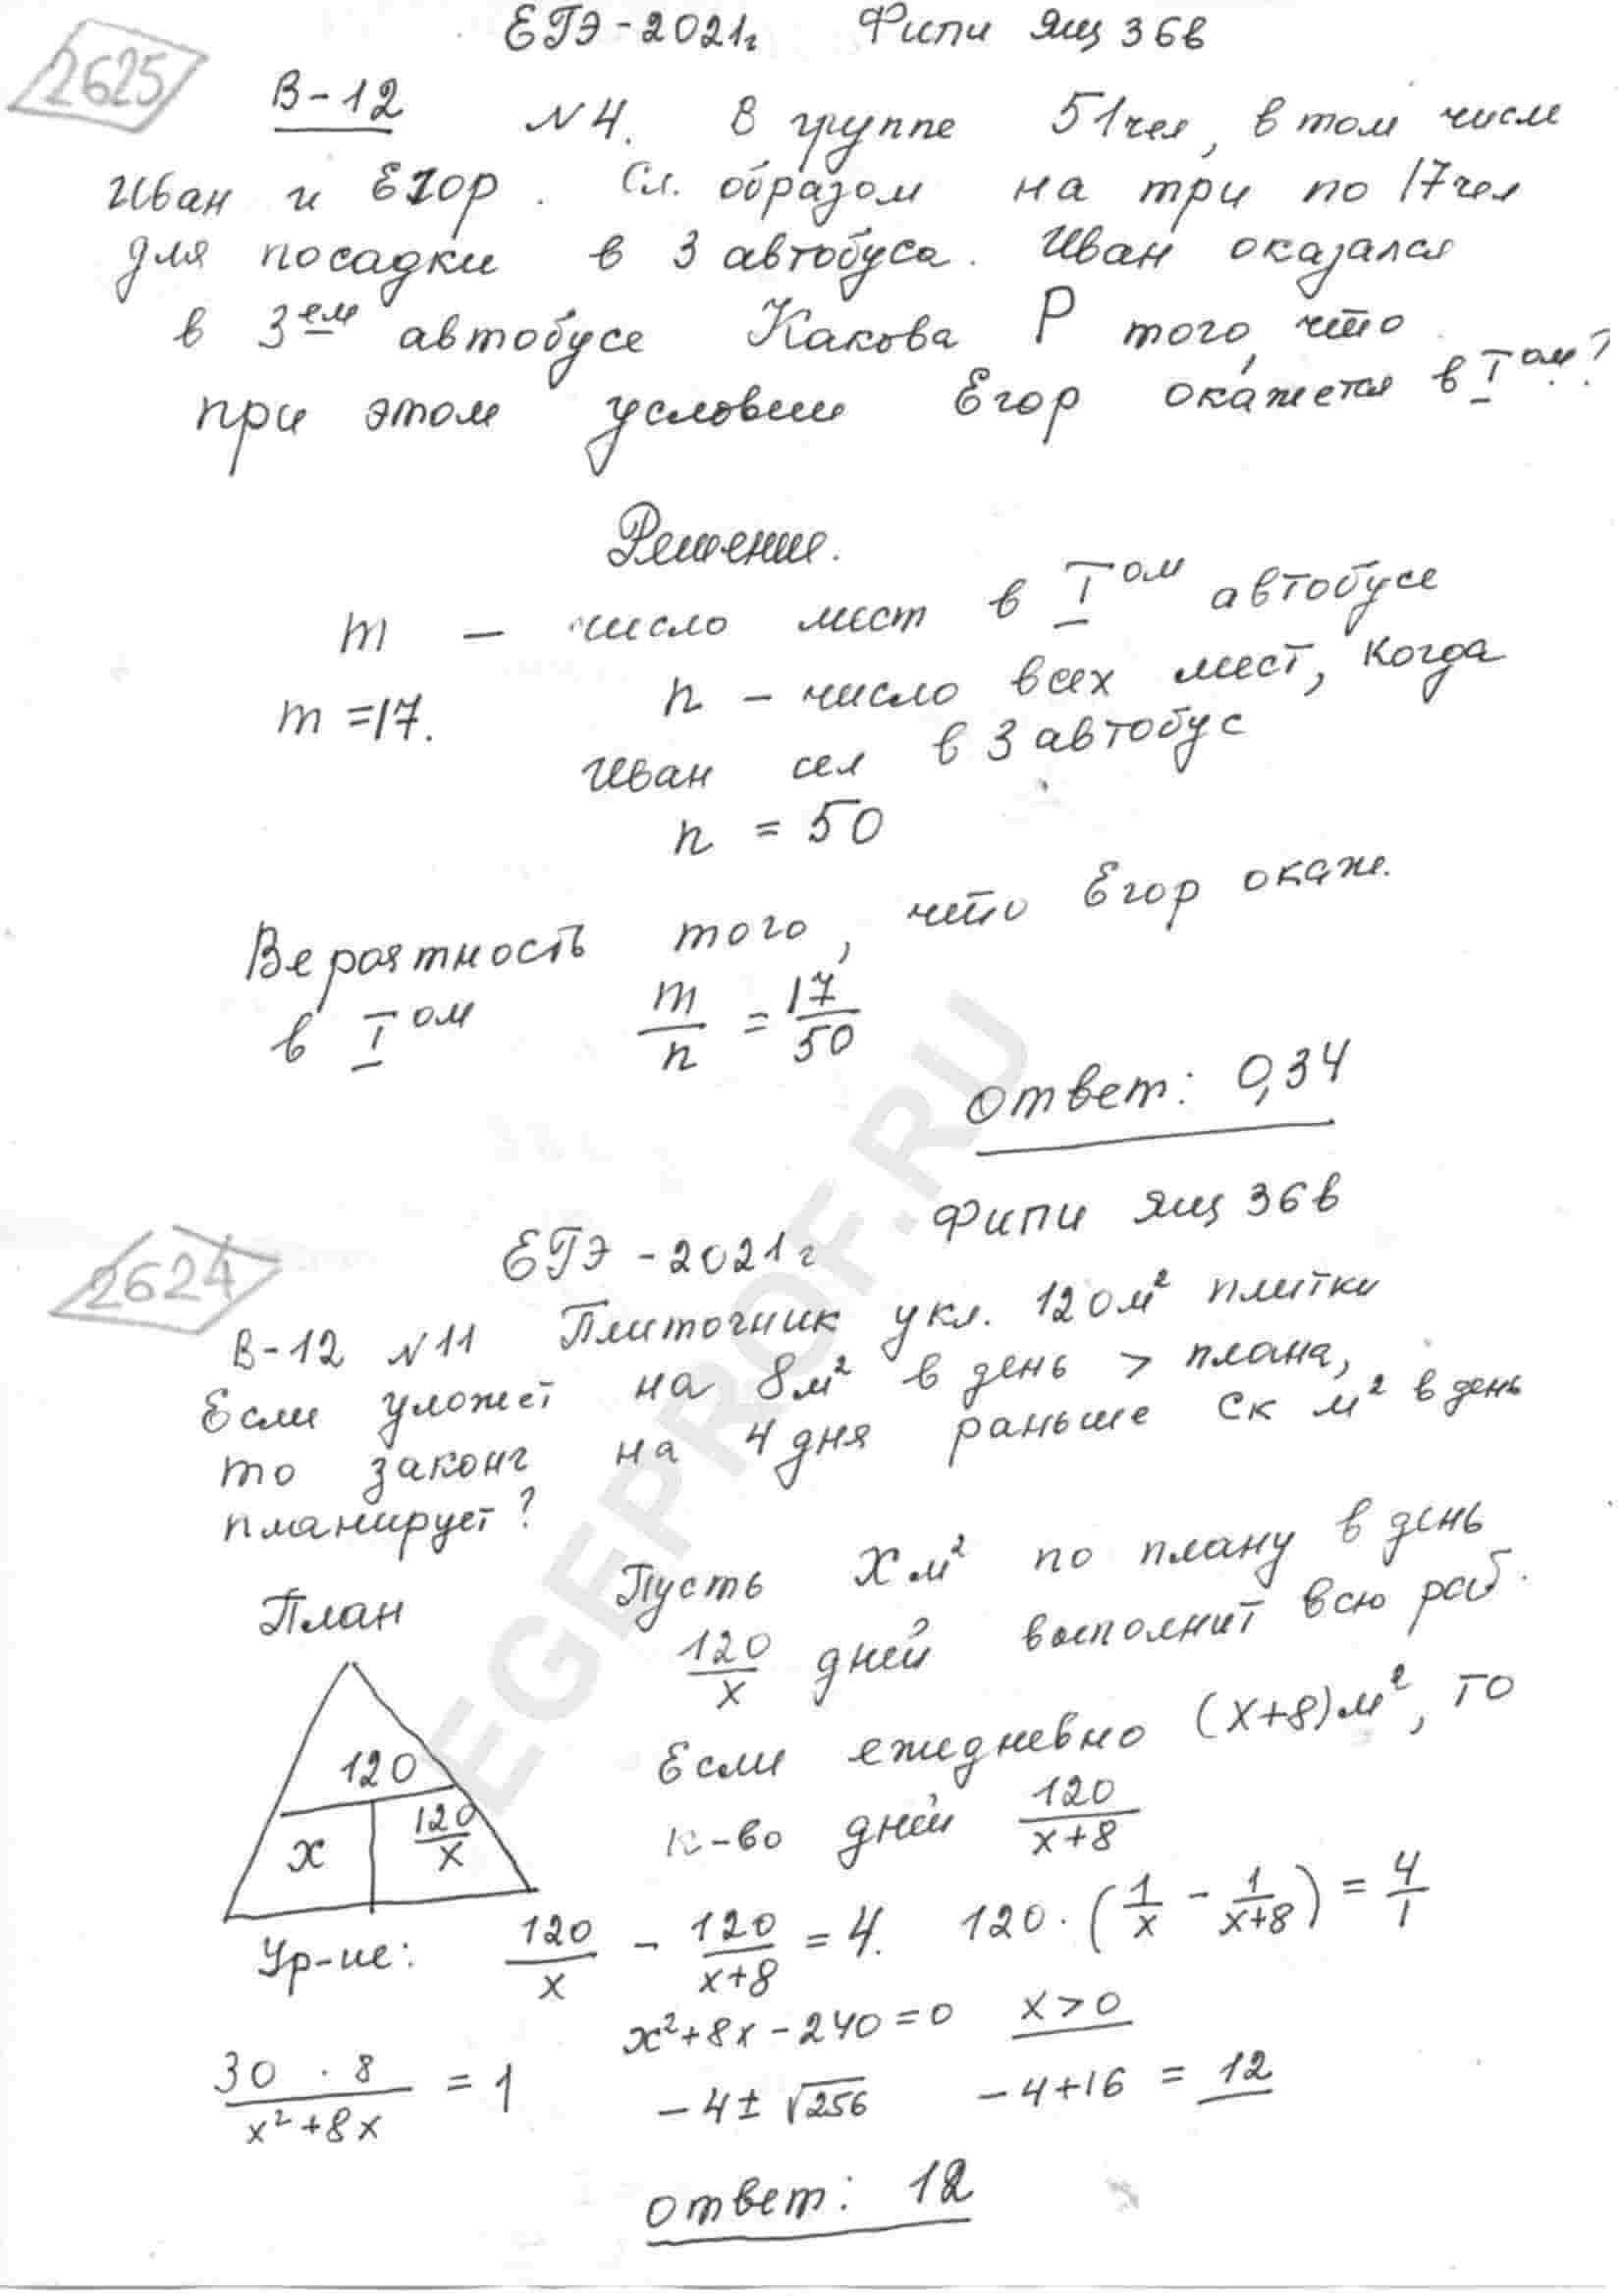 ЕГЭ-2021г Фипи Ящ 36в
2625
В-12 №4. В группе 51чел, в том числе
Иван и Егор. Сл. образом на три по 17чел
для посадки в 3 автобуса. Иван оказался
в 3ем автобусе Какова Р того, что
при этом условии Егор окажется в Iом?
Решение.
m – число мест в Iом автобусе
m = 17. n – число всех мест, когда
Иван сел в 3 автобус
n = 50
Вероятность того, что Егор окаж.
в Iом m/n = 17/50
Ответ: 0,34
2624
ЕГЭ-2021г Фипи Ящ 36в
В-12 №11 Плиточник укл. 120м² плитки
Если уложет на 8м² в день > плана,
то законч на 4 дня раньше Ск м² в день
планирует?
План Пусть Хм² по плану в день
120/x дней выполнит всю раб.
Если ежедневно (x+8)м², то
к-во дней 120/x+8
120
x 120/x
Ур-ие: 120/x - 120/x+8 = 4. 120·(1/x - 1/x+8) = 4/1
30 · 8/x²+8x = 1 x²+8x-240=0 x>0
-4±√256 -4+16 = 12
ответ: 12
EGEPROF.RU